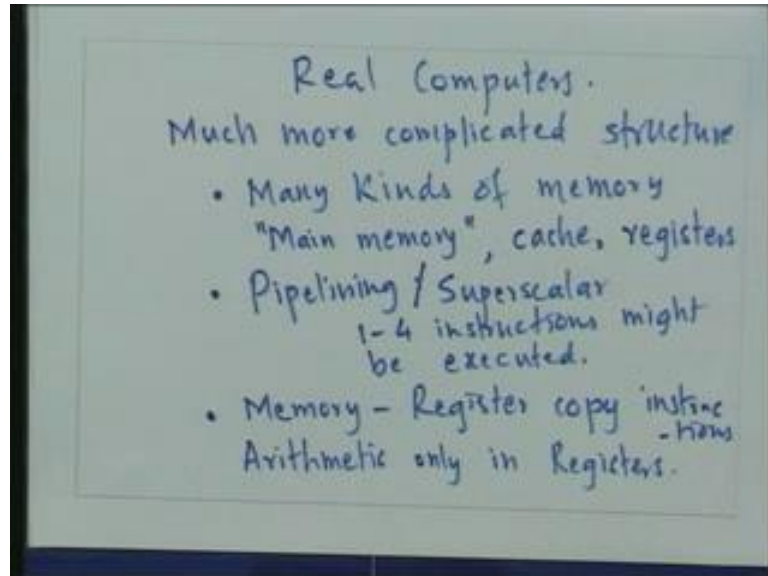 Real Computers.
Much more complicated structure
• Many Kinds of memory
"Main memory", cache, registers
• Pipelining / Superscalar
1-4 instructions might
be executed.
• Memory - Register copy instruc
-tions
Arithmetic only in Registers.